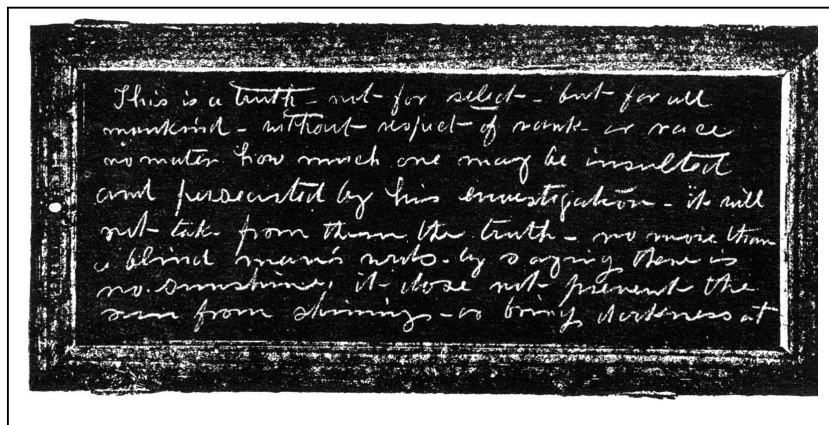 This is a truth - not for select - but for all
mankind - without respect of rank or race
no mater how much one may be insulted
and persecuted by his investigation - it will
not take from them the truth - no more than
a blind man's words - by saying there is
no sunshine, it dose not prevent the
sun from shining - or bring darkness at